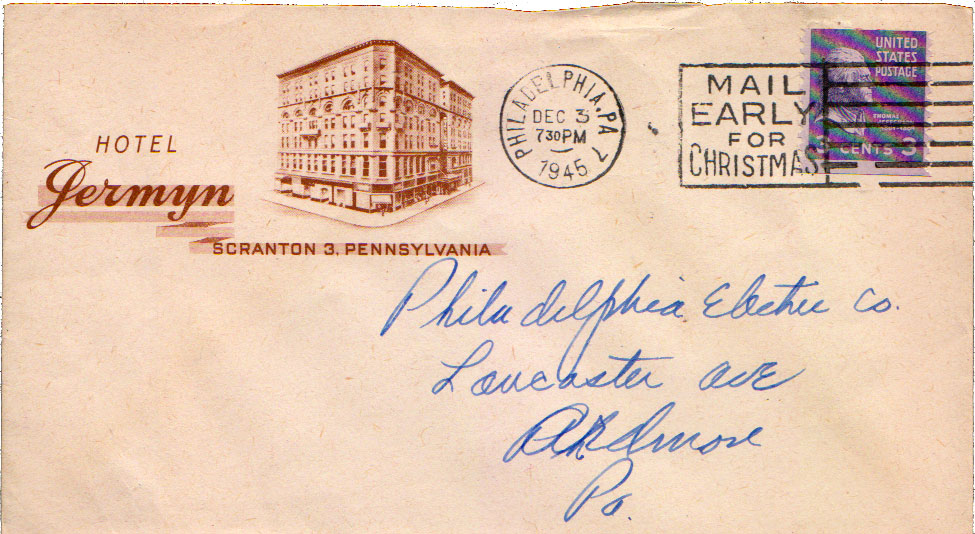 HOTEL
Jermyn
SCRANTON 3, PENNSYLVANIA
PHILADELPHIA, PA
DEC 3
730 PM
1945
7
MAIL
EARLY
FOR
CHRISTMAS
UNITED
STATES
POSTAGE
THOMAS
JEFFERSON
3 CENTS 3
Philadelphia Electric Co.
Lancaster Ave
Ardmore
Pa.